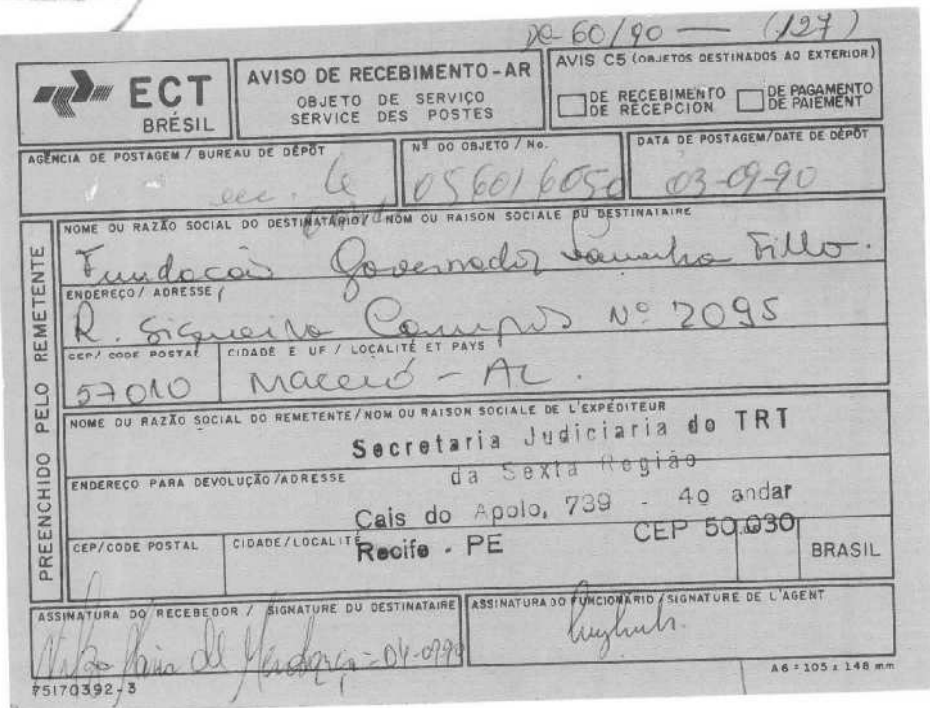 DC-60/90 — (127)
ECT
BRÉSIL
AVISO DE RECEBIMENTO-AR
OBJETO DE SERVIÇO
SERVICE DES POSTES
AVIS C5 (OBJETOS DESTINADOS AO EXTERIOR)
DE RECEBIMENTO
DE RÉCEPCION
DE PAGAMENTO
DE PAIEMENT
AGÊNCIA DE POSTAGEM / BUREAU DE DÉPÔT
Nº DO OBJETO / No.
056016050
DATA DE POSTAGEM/DATE DE DÉPÔT
03-09-90
PREENCHIDO PELO REMETENTE
NOME OU RAZÃO SOCIAL DO DESTINATÁRIO / NOM OU RAISON SOCIALE DU DESTINATAIRE
Fundação Governador Lamenha Filho.
ENDEREÇO/ ADRESSE
R. Siqueira Campos Nº 2095
CEP/ CODE POSTAL
57010
CIDADE E UF / LOCALITÉ ET PAYS
Maceió - AL.
NOME OU RAZÃO SOCIAL DO REMETENTE/NOM OU RAISON SOCIALE DE L'EXPÉDITEUR
Secretaria Judiciaria do TRT
da Sexta Região
ENDEREÇO PARA DEVOLUÇÃO/ADRESSE
Cais do Apolo, 739 - 4o andar
CEP/CODE POSTAL
CIDADE/LOCALITÉ
Recife - PE CEP 50.030
BRASIL
ASSINATURA DO RECEBEDOR / SIGNATURE DU DESTINATAIRE
Maria de Mendonça - 04-0990
ASSINATURA DO FUNCIONÁRIO/SIGNATURE DE L'AGENT
75170392-3
A6 = 105 x 148 mm